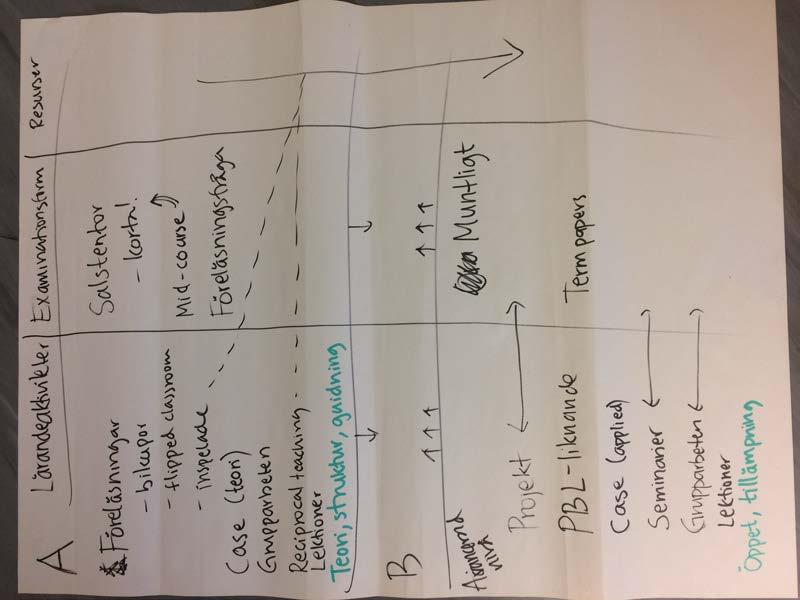 A
Lärandeaktivikter
Examinationsform
Resurser
Föreläsningar
- bikupor
- flipped classroom
- inspelade
Salstentor
- korta!
Mid-course
Föreläsningsfråga
Case (teori)
Grupparbeten
Reciprocal teaching
Lektioner
Teori, struktur, guidning
B
Muntligt
Projekt
PBL-liknande
Term papers
Case (applied)
Seminarier
Grupparbeten
Lektioner
Öppet, tillämpning